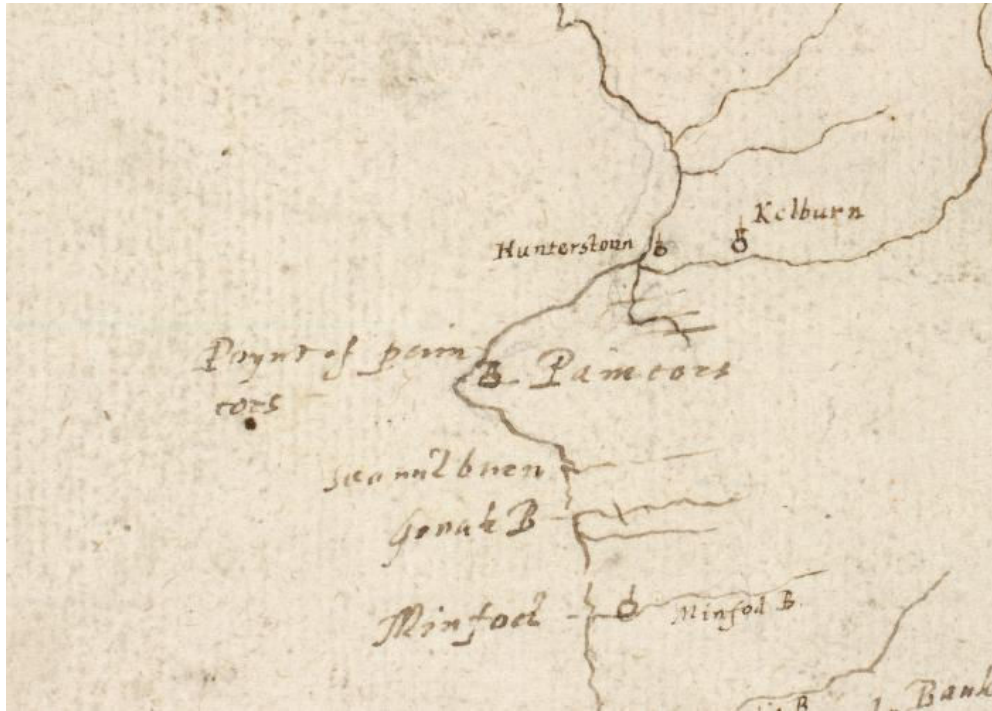 Kelburn
Hunterstoun
Poynt of penn
cors
Pamcors
seamilburn
Gouak B
Minfoct
Minfod B.
B
Bank